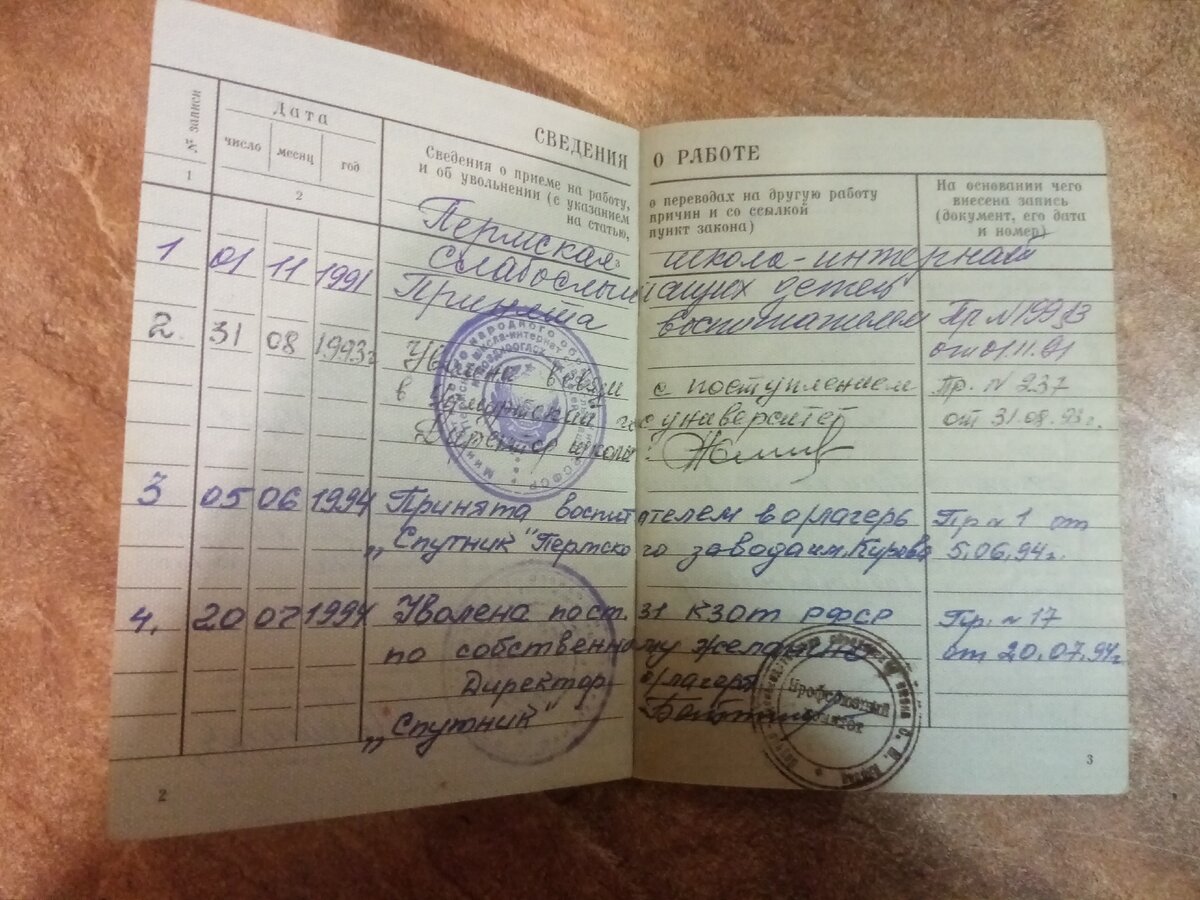 СВЕДЕНИЯ О РАБОТЕ
№ записи
Дата
число
месяц
год
Сведения о приеме на работу, о переводах на другую работу
и об увольнении (с указанием причин и со ссылкой
на статью, пункт закона)
На основании чего
внесена запись
(документ, его дата
и номер)
1
2
3
Пермская школа-интернат
1 01 11 1991 слабослышащих детей
Принята воспитателем Пр №199
от 01.11.91
2. 31 08 1993г Уволена в связи с поступлением Пр. № 237
в университет от 31.08.93г.
Директор школы:
3 05 06 1994 Принята воспитателем в о/лагерь Пр № 1 от
„Спутник" Пермского завода им. Кирова 5.06.94г.
4. 20 07 1994 Уволена по ст. 31 КЗОТ РФСР Пр. № 17
по собственному желанию от 20.07.94г
Директор о/лагеря
„Спутник"
Профсоюзный
комитет
2
3